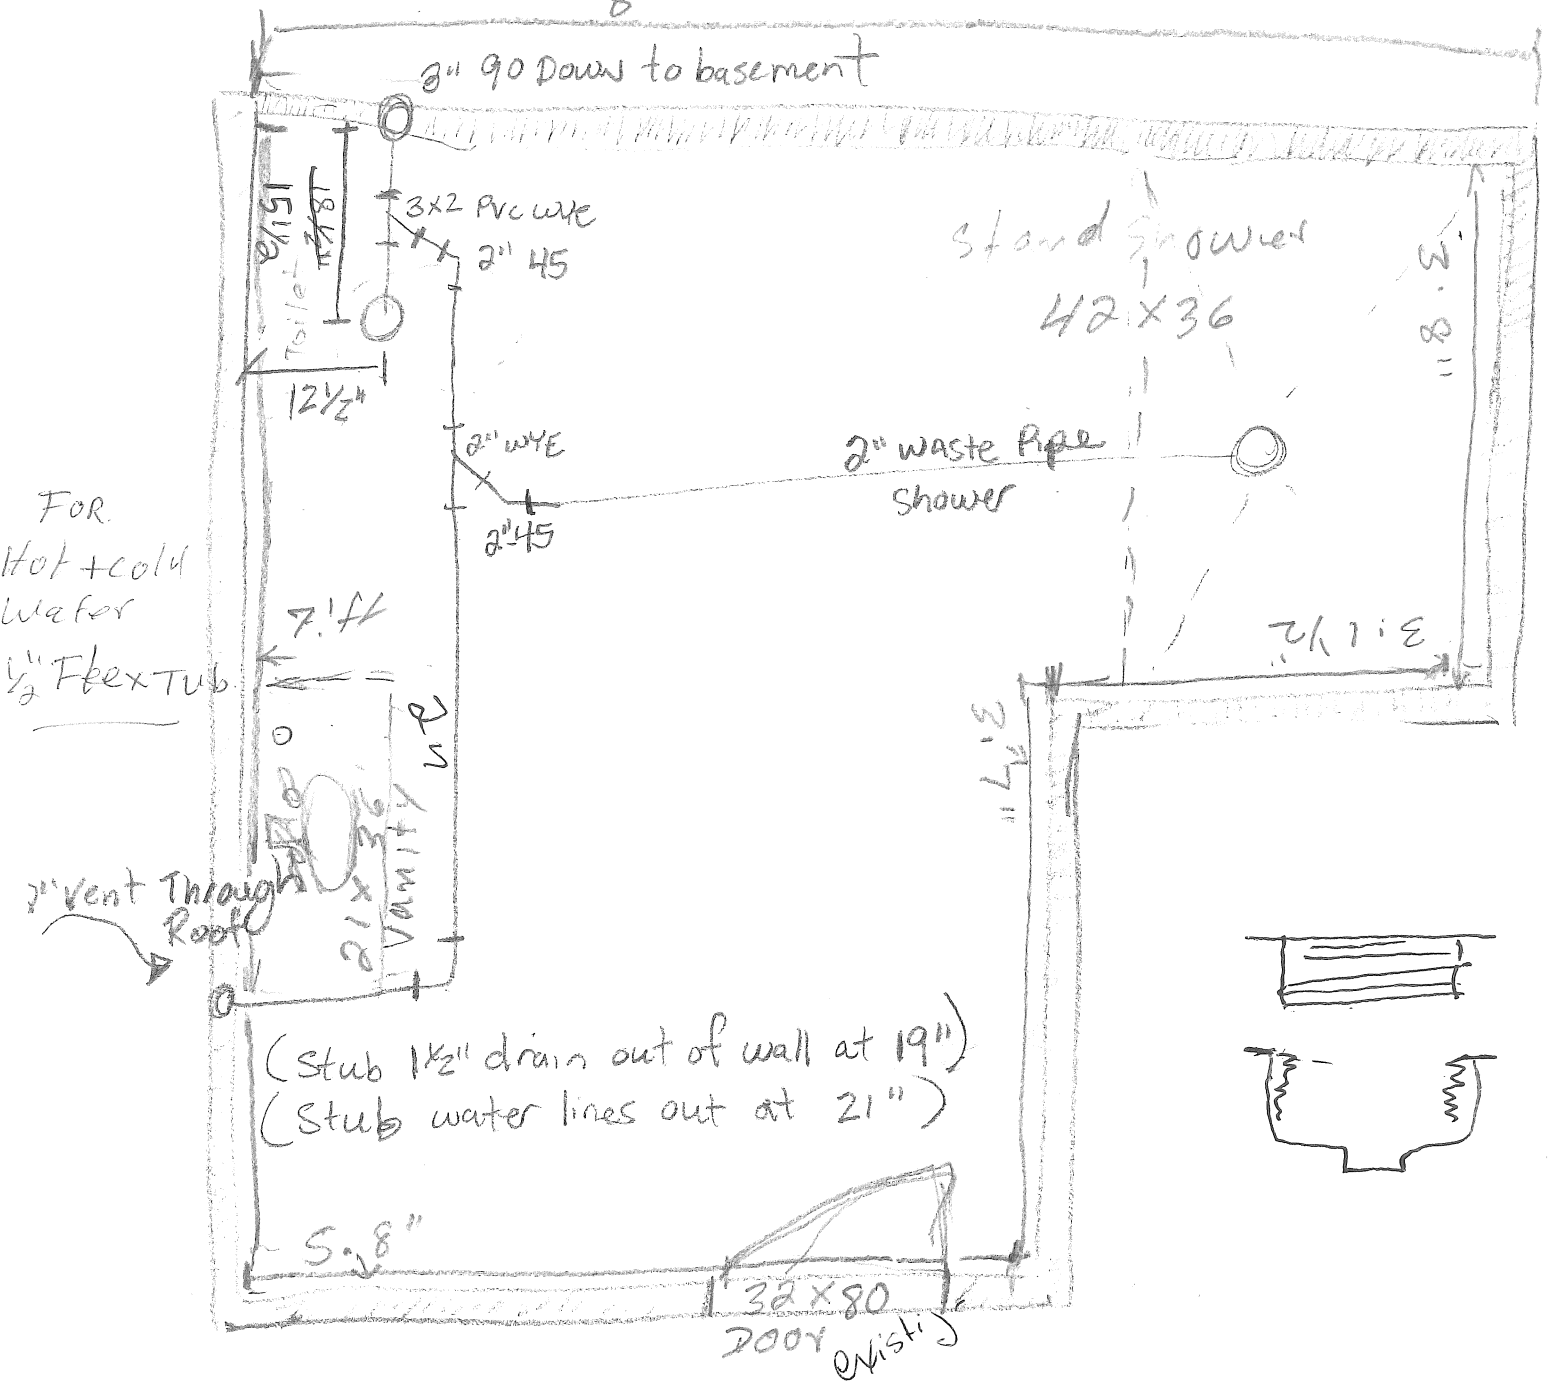 8
2" 90 Down to basement
15 1/2
18 1/2"
Toilet
3x2 PVC WYE
2" 45
Stand Shower
42 x 36
3.8"
12 1/2"
2" WYE
2" Waste Pipe
Shower
2" 45
FOR
Hot + cold
Water
1/2" Flex Tub
7.'ft
3.1 1/2"
2"
3.'7"
21 x 36
Vanity
2" Vent Through
Roof
(Stub 1 1/2" drain out of wall at 19")
(Stub water lines out at 21")
5.8"
32 x 80
Door
existig